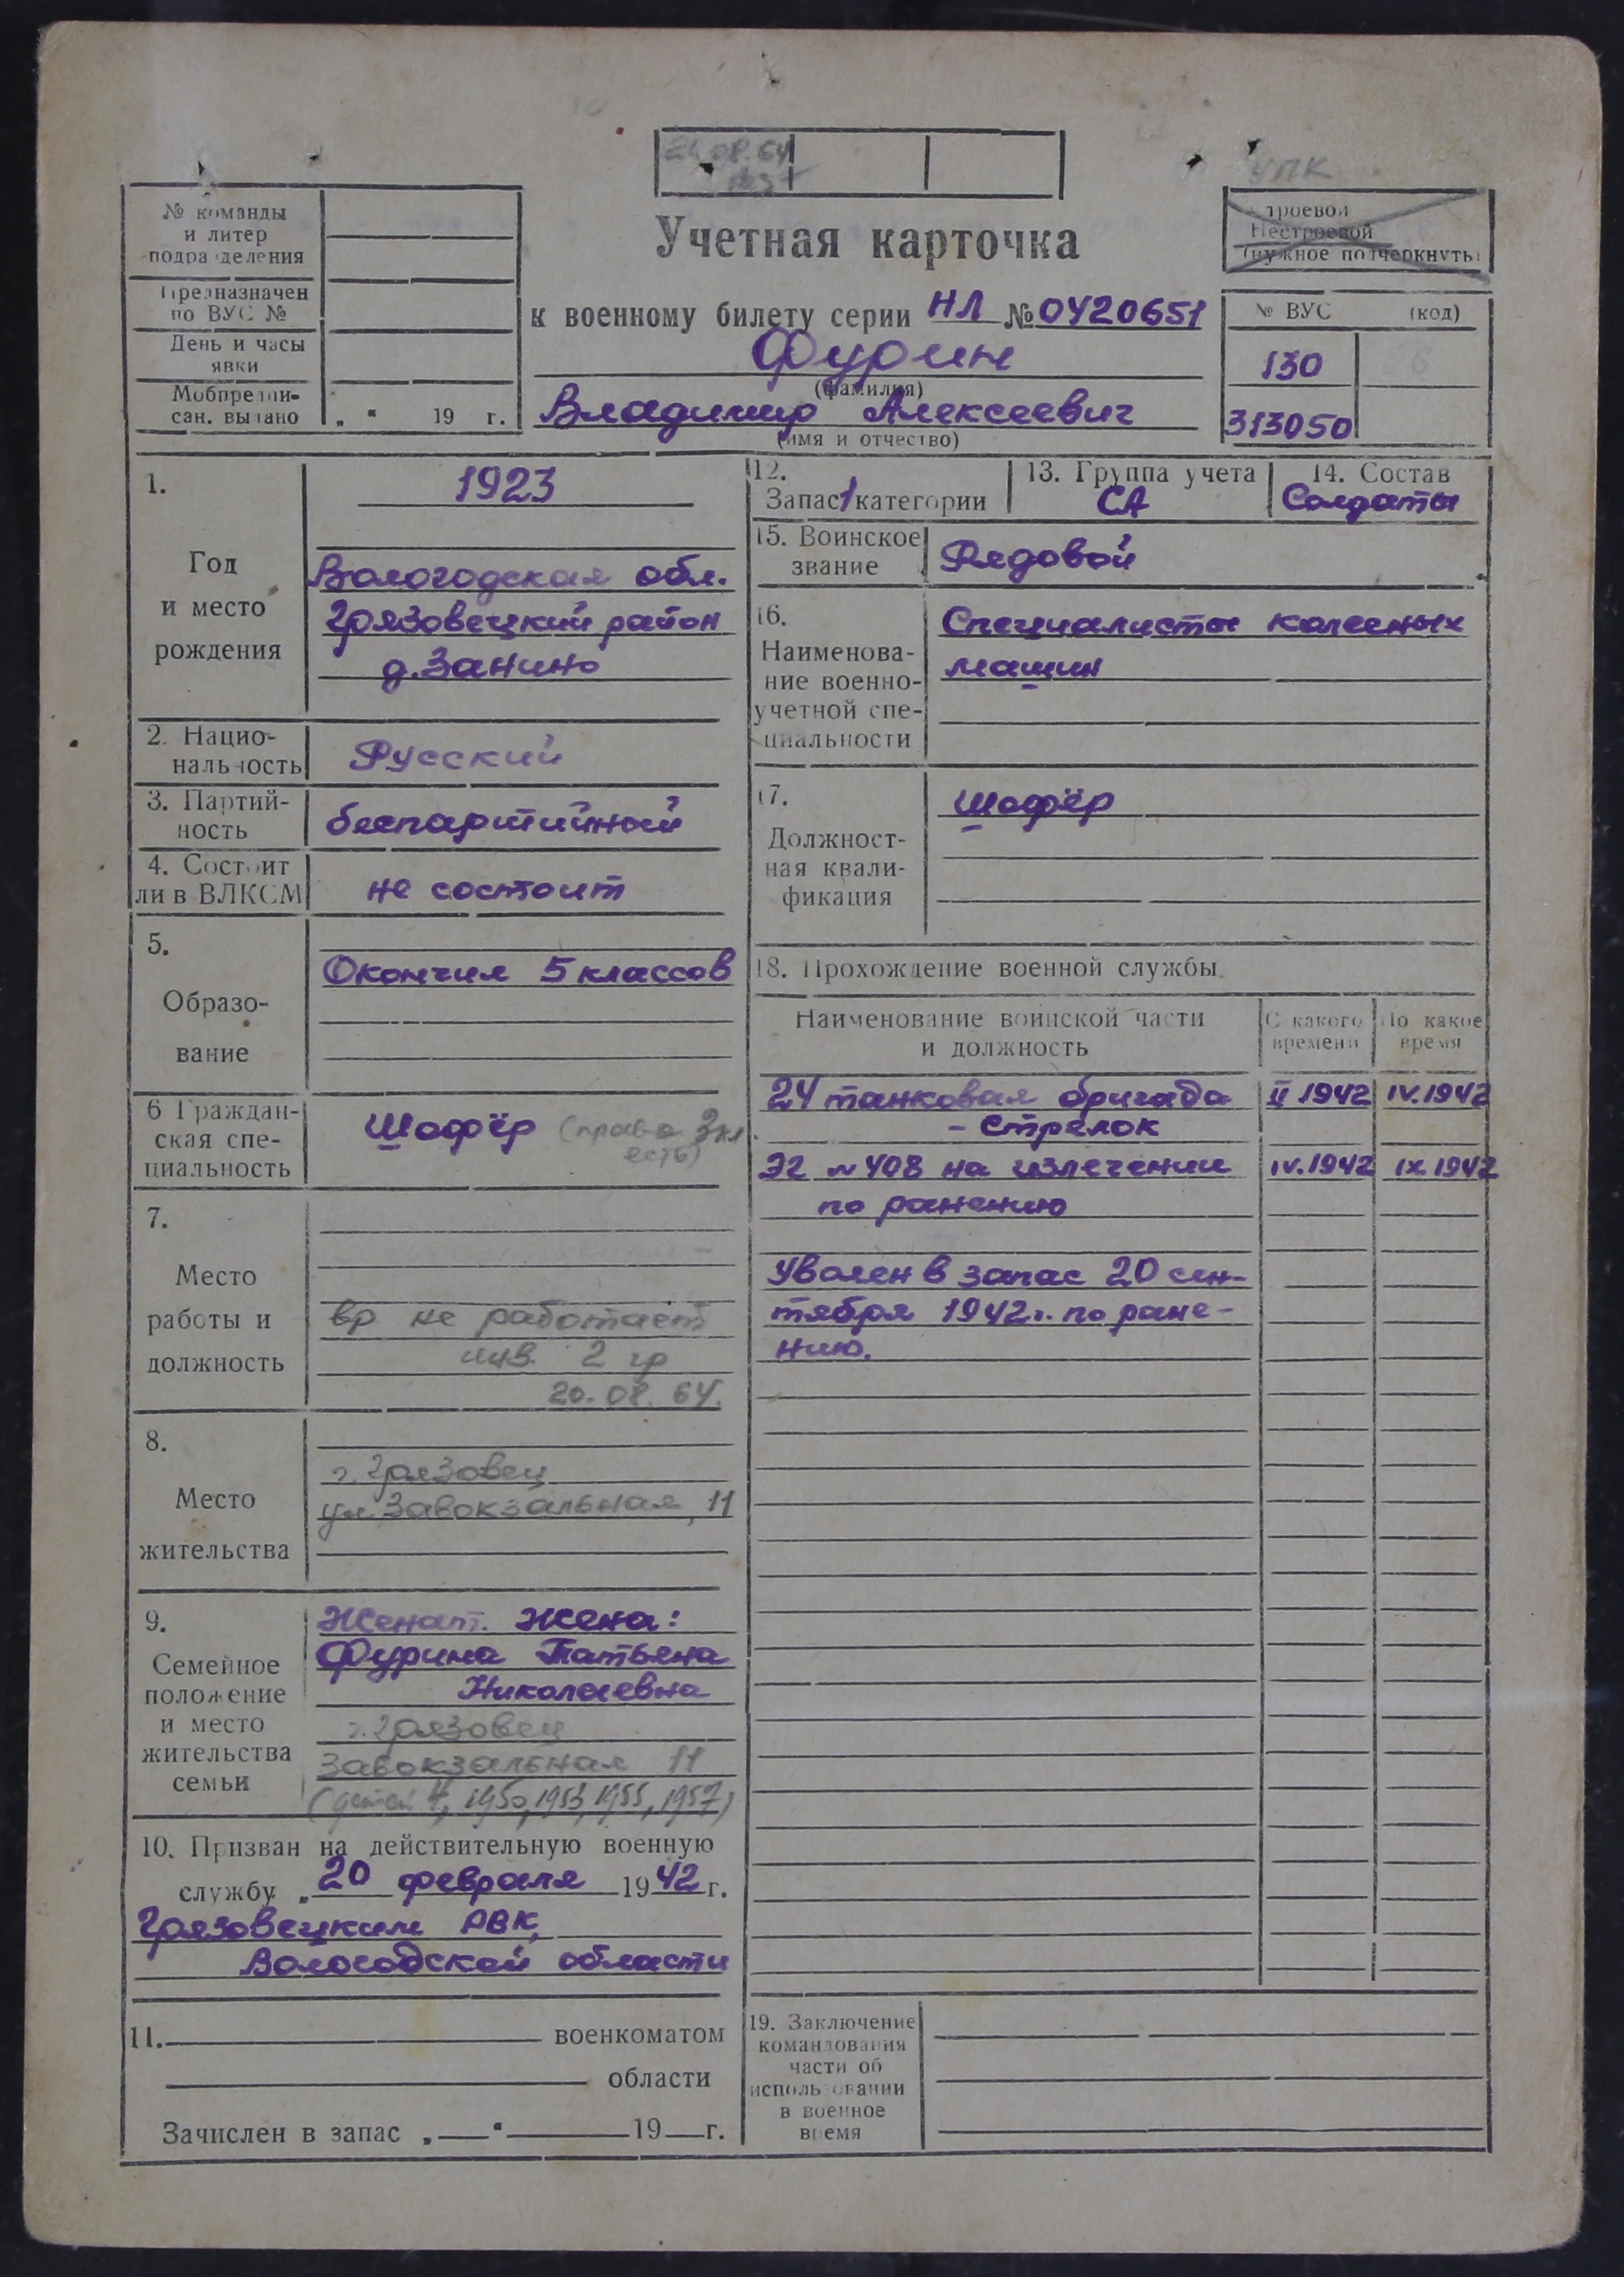 24.08.64
УПК
№ команды
и литер
подразделения
Предназначен
по ВУС №
День и часы
явки
Мобпредпи-
сан. выдано „ “ 19 г.
Учетная карточка
к военному билету серии НЛ № 0420651
Фурин
(фамилия)
Владимир Алексеевич
(имя и отчество)
Строевой
Нестроевой
(нужное подчеркнуть)
№ ВУС (код)
130
313050
1.
Год
и место
рождения
1923
Вологодская обл.
Грязовецкий район
д. Занино
2. Нацио-
нальность
Русский
3. Партий-
ность
беспартийный
4. Состоит
ли в ВЛКСМ
не состоит
5.
Образо-
вание
Окончил 5 классов
6 Граждан-
ская спе-
циальность
Шофёр (права 3 кл.
есть)
7.
Место
работы и
должность
вр не работает
инв. 2 гр
20.08.64.
8.
Место
жительства
г. Грязовец
ул. Завокзальная, 11
9.
Семейное
положение
и место
жительства
семьи
Женат. Жена:
Фурина Татьяна
Николаевна
г. Грязовец
Завокзальная 11
(детей 4, 1950, 1953, 1955, 1957)
10. Призван на действительную военную
службу „ 20 февраля 1942 г.
Грязовецким РВК,
Вологодской области
11. военкоматом
области
Зачислен в запас „ “ 19 г.
12.
Запас 1 категории
13. Группа учета
СА
14. Состав
Солдаты
15. Воинское
звание
Рядовой
16.
Наименова-
ние военно-
учетной спе-
циальности
Специалисты колесных
машин
17.
Должност-
ная квали-
фикация
Шофёр
18. Прохождение военной службы.
Наименование воинской части
и должность
С какого
времени
По какое
время
24 танковая бригада II 1942 IV.1942
- Стрелок
ЭГ № 408 на излечении IV.1942 IX.1942
по ранению
Уволен в запас 20 сен-
тября 1942 г. по ране-
нию.
19. Заключение
командования
части об
использовании
в военное
время